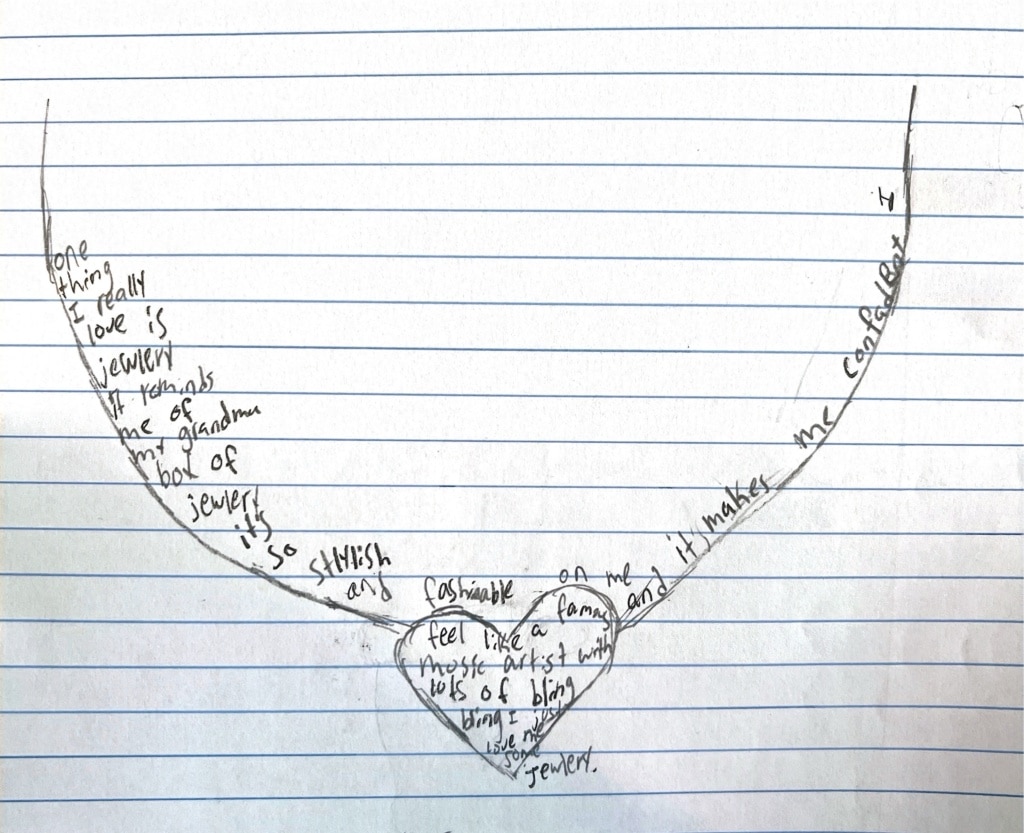 one
thing
I really
love is
jewlery
It reminds
me of
my grandma
box of
jewlery
it's
so
stlylish
and
fashinable
on me
and
it's makes
me
confadBot
I
feel like a famous
music artist with
lots of bling
bling I just
love me
some
jewlery.